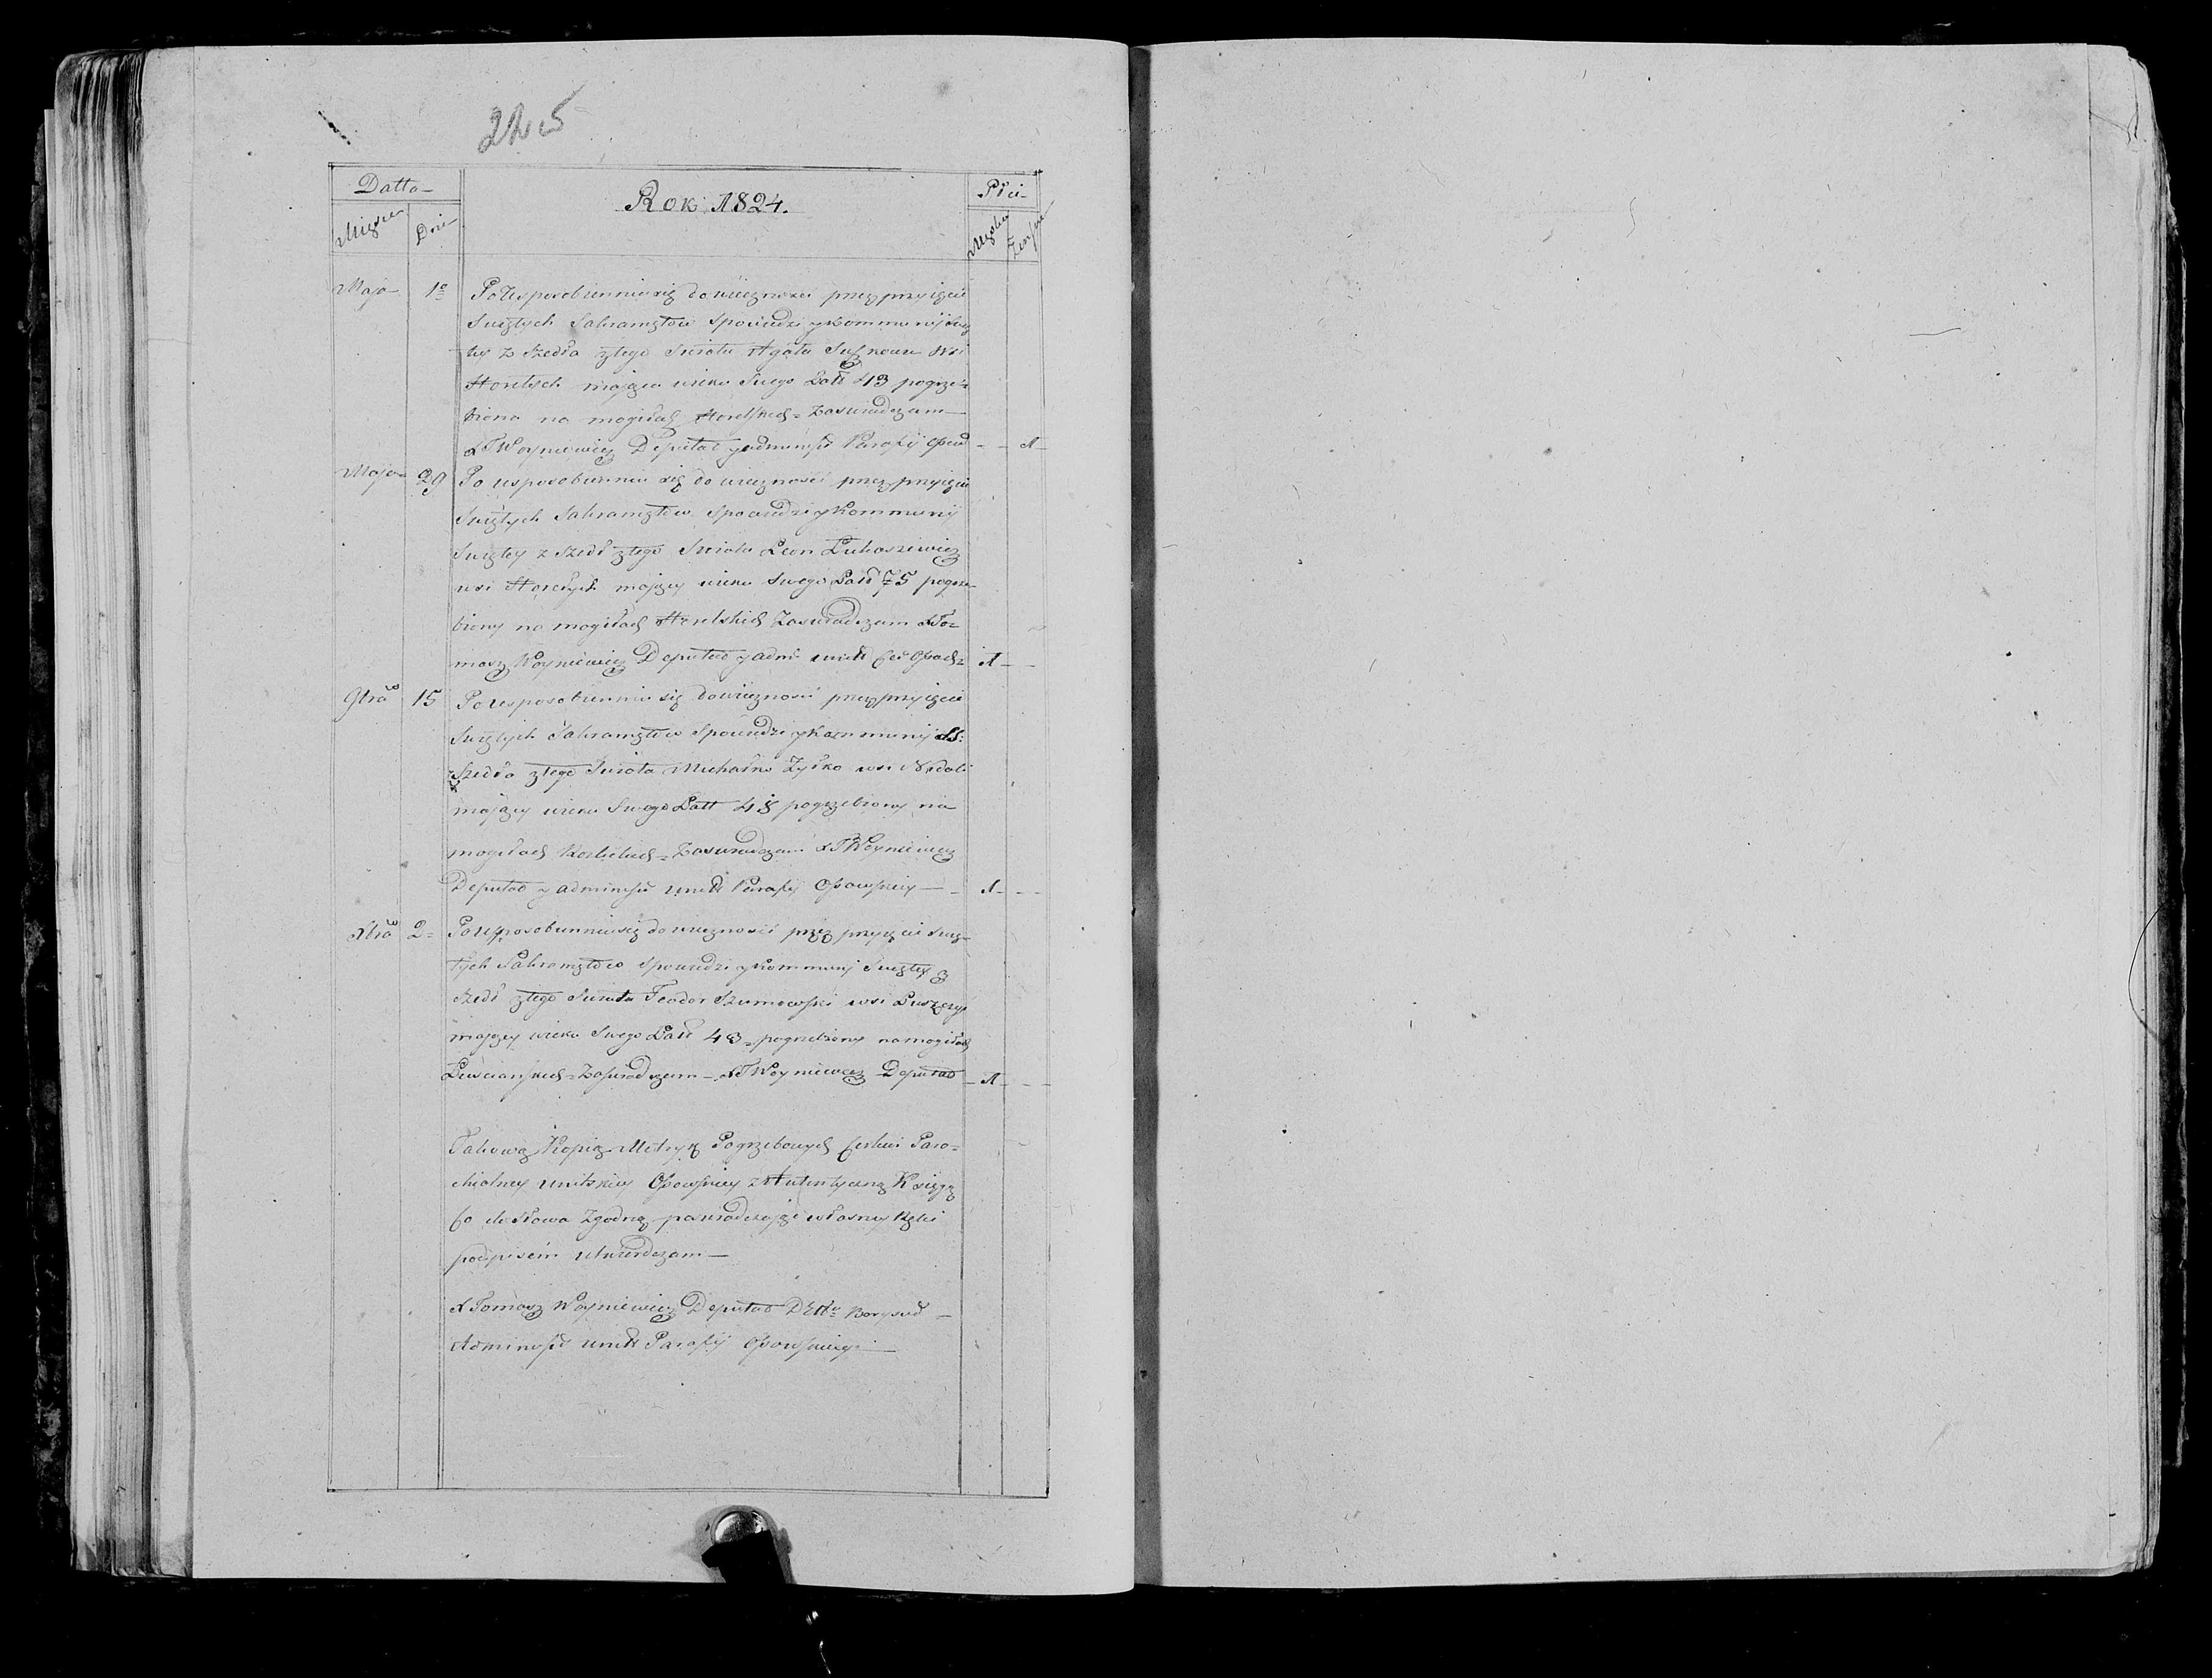 225
Datta
Rok 1824.
Płci
Miesca Dni
Męska Żeńska
Maja 1º Po Usposobienniu się do wiecznosci przez przyięcie
Swiętych Sakramętow Spowiedzi y Kommunij Swię
tey z Szedła z tego Swiata Agata wsi
mająca wieku Swego Latt 43 pogrze=
biona na mogiłach Zaswiadczam
X T Woyniewicz Deputat y administ Parafij - - 1
Maja 29 Po usposobienniu się do wiecznosci przez przyięcie
Swiętych Sakramętow Spowiedzi y Kommunij
Swiętey z Szedł z tego Swiata Leon Łukaszewicz
wsi mający wieku Swego Latt 75 pogrze
biony na mogiłach Zaswiadczam X To=
masz Woyniewicz Deputat y adm unitt 1 -
9bra 15 Po usposobienniu się do wiecznosci przez przyięcie
Swiętych Sakramętow Spowiedzi y Kommunij SS:
z Szedła z tego Swiata Michałko Zyłko wsi
mający wieku Swego Latt 48 pogrzebiony na
mogiłach Zaswiadczam X T Woyniewicz
Deputat y administ unitt Parafij Osowskiey - 1 - -
Xbra 2= Po usposobienniu się do wiecznosci przez przyięcie Swię=
tych Sakramętow Spowiedzi y Kommunij Swiętey z
Szedł z tego Swiata Teodor Szumowski wsi
mający wieku Swego Latt 43 pogrzebiony na mogiłach
Zaswiadczam - X T Woyniewicz Deputat - 1 - -
Takową Kopią Metryk Pogrzebowych Cerkwi Paro=
chialney Unitskiey Osowskiey z Autentyczną Xsięgą
Co do Słowa Zgodną poswiadczając własney Ręki
podpisem utwierdzam
X Tomasz Woyniewicz Deputat Borysow
Administ unitt Parafij Osowskiey